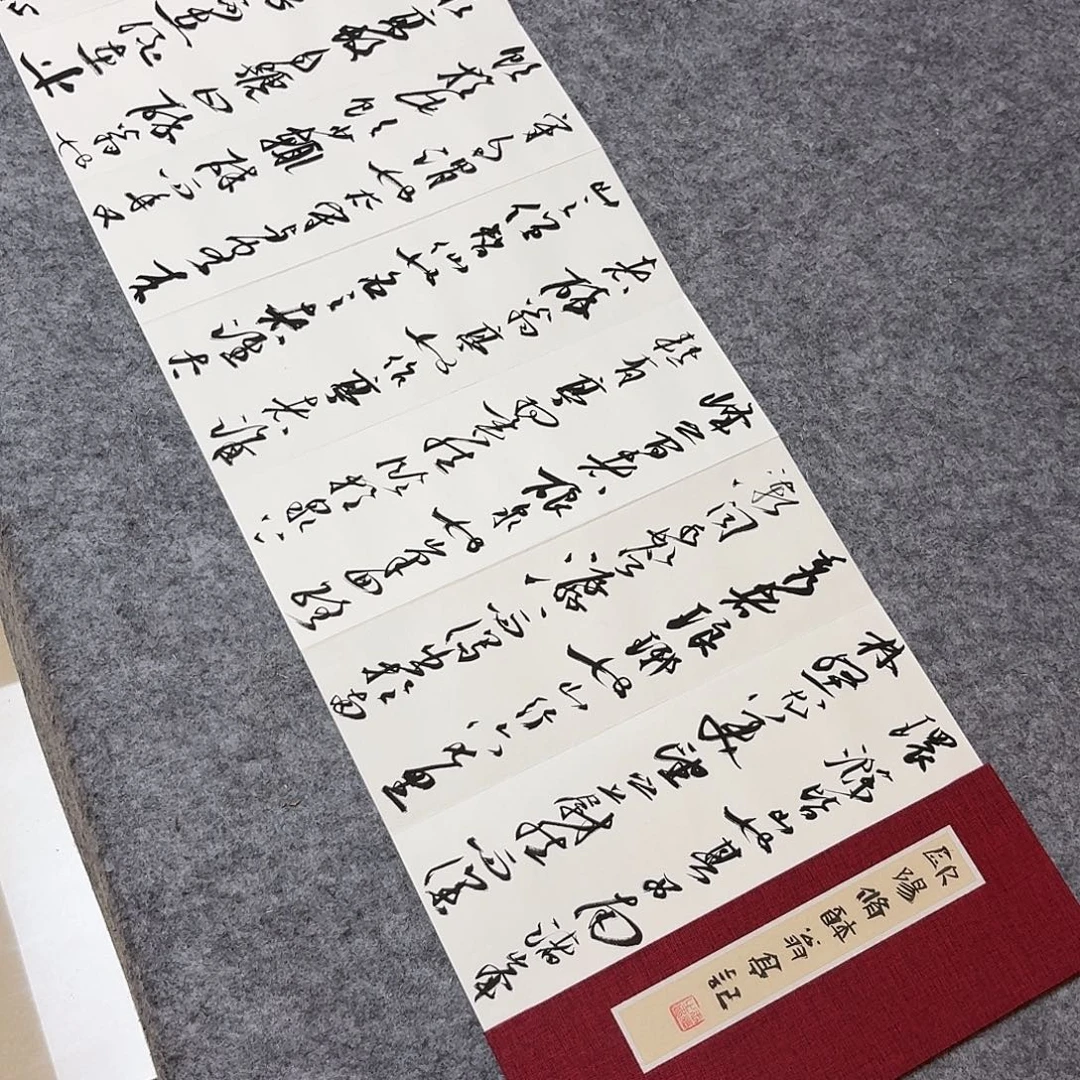 歐陽脩醉翁亭記
環滁皆山也其西南諸峯
林壑尤美望之蔚然而深
秀者琅琊也山行六七里
漸聞水聲潺潺而瀉出於兩
峰之間者釀泉也峰回路
轉有亭翼然臨於泉上
者醉翁亭也作亭者誰
山之僧智仙也名之者誰太
守自謂也太守與客來
飲於此飲少輒醉而年又
最高故自號曰醉翁也
不在酒在乎